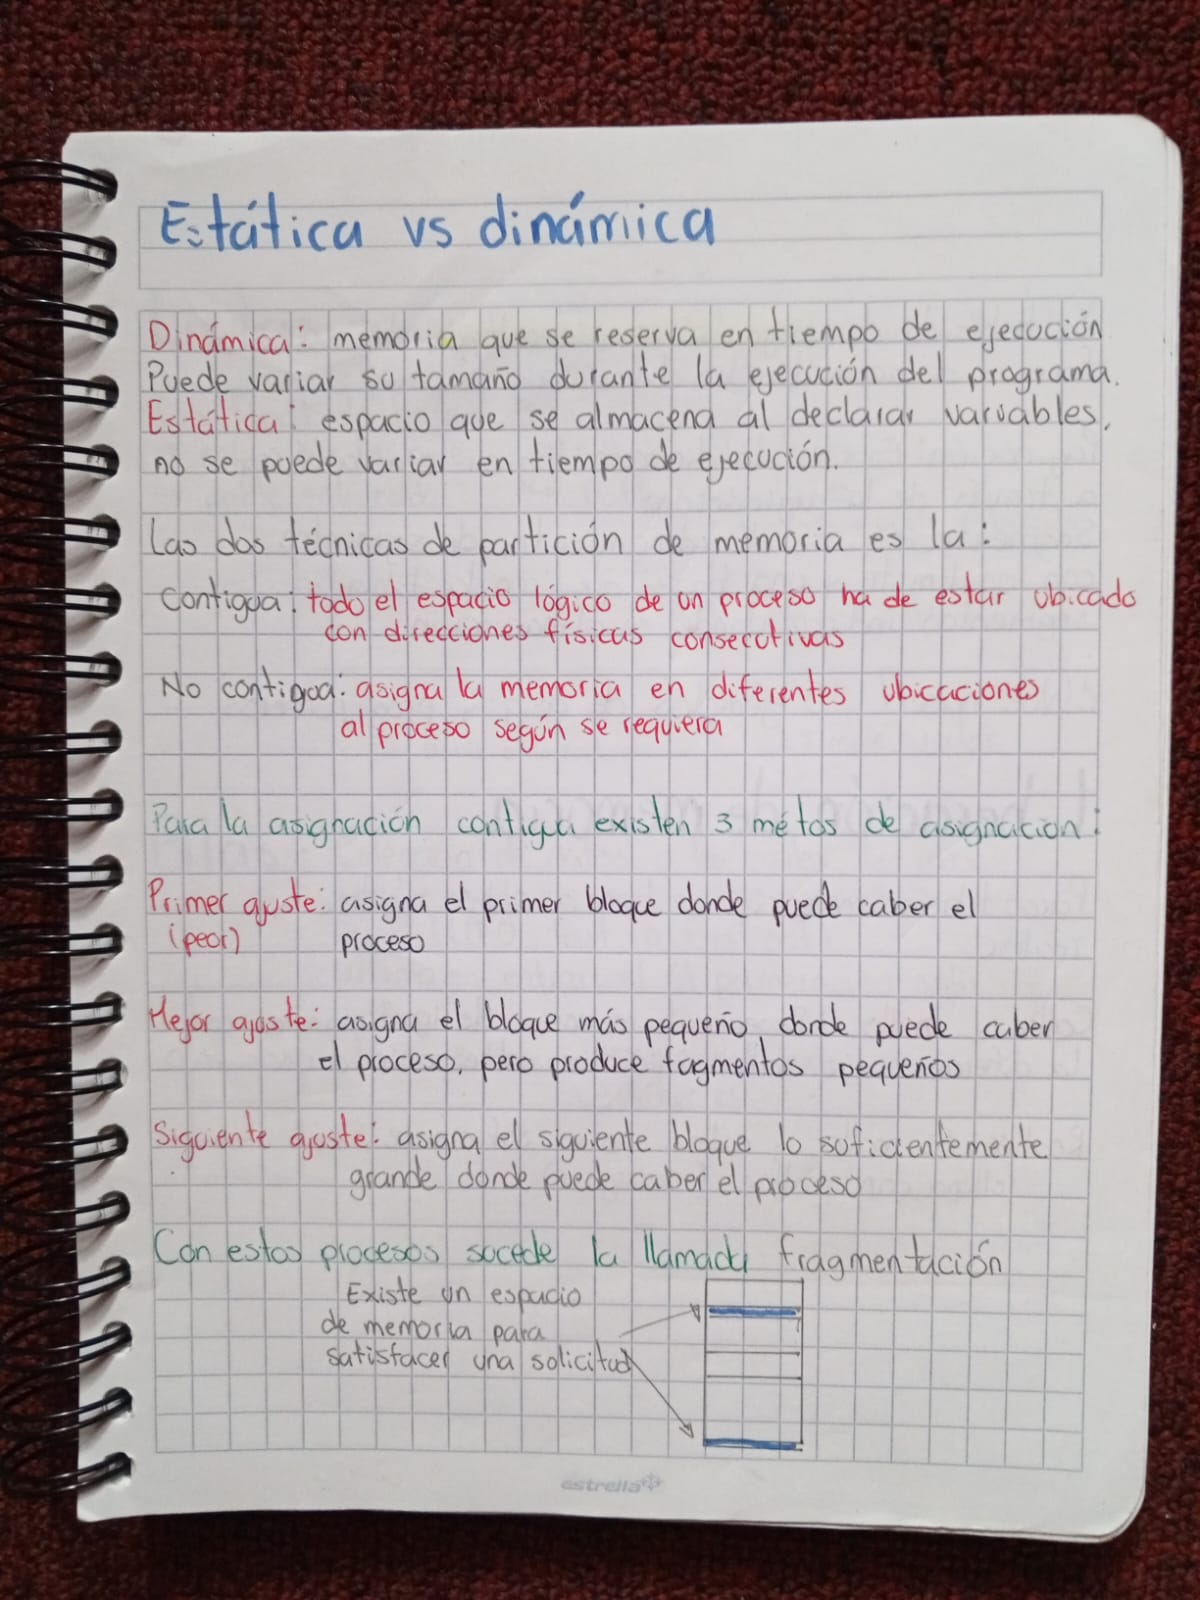 Estática vs dinámica
Dinámica: memoria que se reserva en tiempo de ejecución
Puede variar su tamaño durante la ejecución del programa.
Estática: espacio que se almacena al declarar variables,
no se puede variar en tiempo de ejecución.
Las dos técnicas de partición de memoria es la:
Contigua: todo el espacio lógico de un proceso ha de estar ubicado
con direcciones físicas consecutivas
No contigua: asigna la memoria en diferentes ubicaciones
al proceso según se requiera
Para la asignación contigua existen 3 métos de asignación:
Primer ajuste: asigna el primer bloque donde puede caber el
(peor) proceso
Mejor ajuste: asigna el bloque más pequeño donde puede caber
el proceso, pero produce fagmentos pequeños
Siguiente ajuste: asigna el siguiente bloque lo suficientemente
grande donde puede caber el proceso
Con estos procesos sucede la llamada fragmentación
Existe un espacio
de memoria para
satisfacer una solicitud
estrella